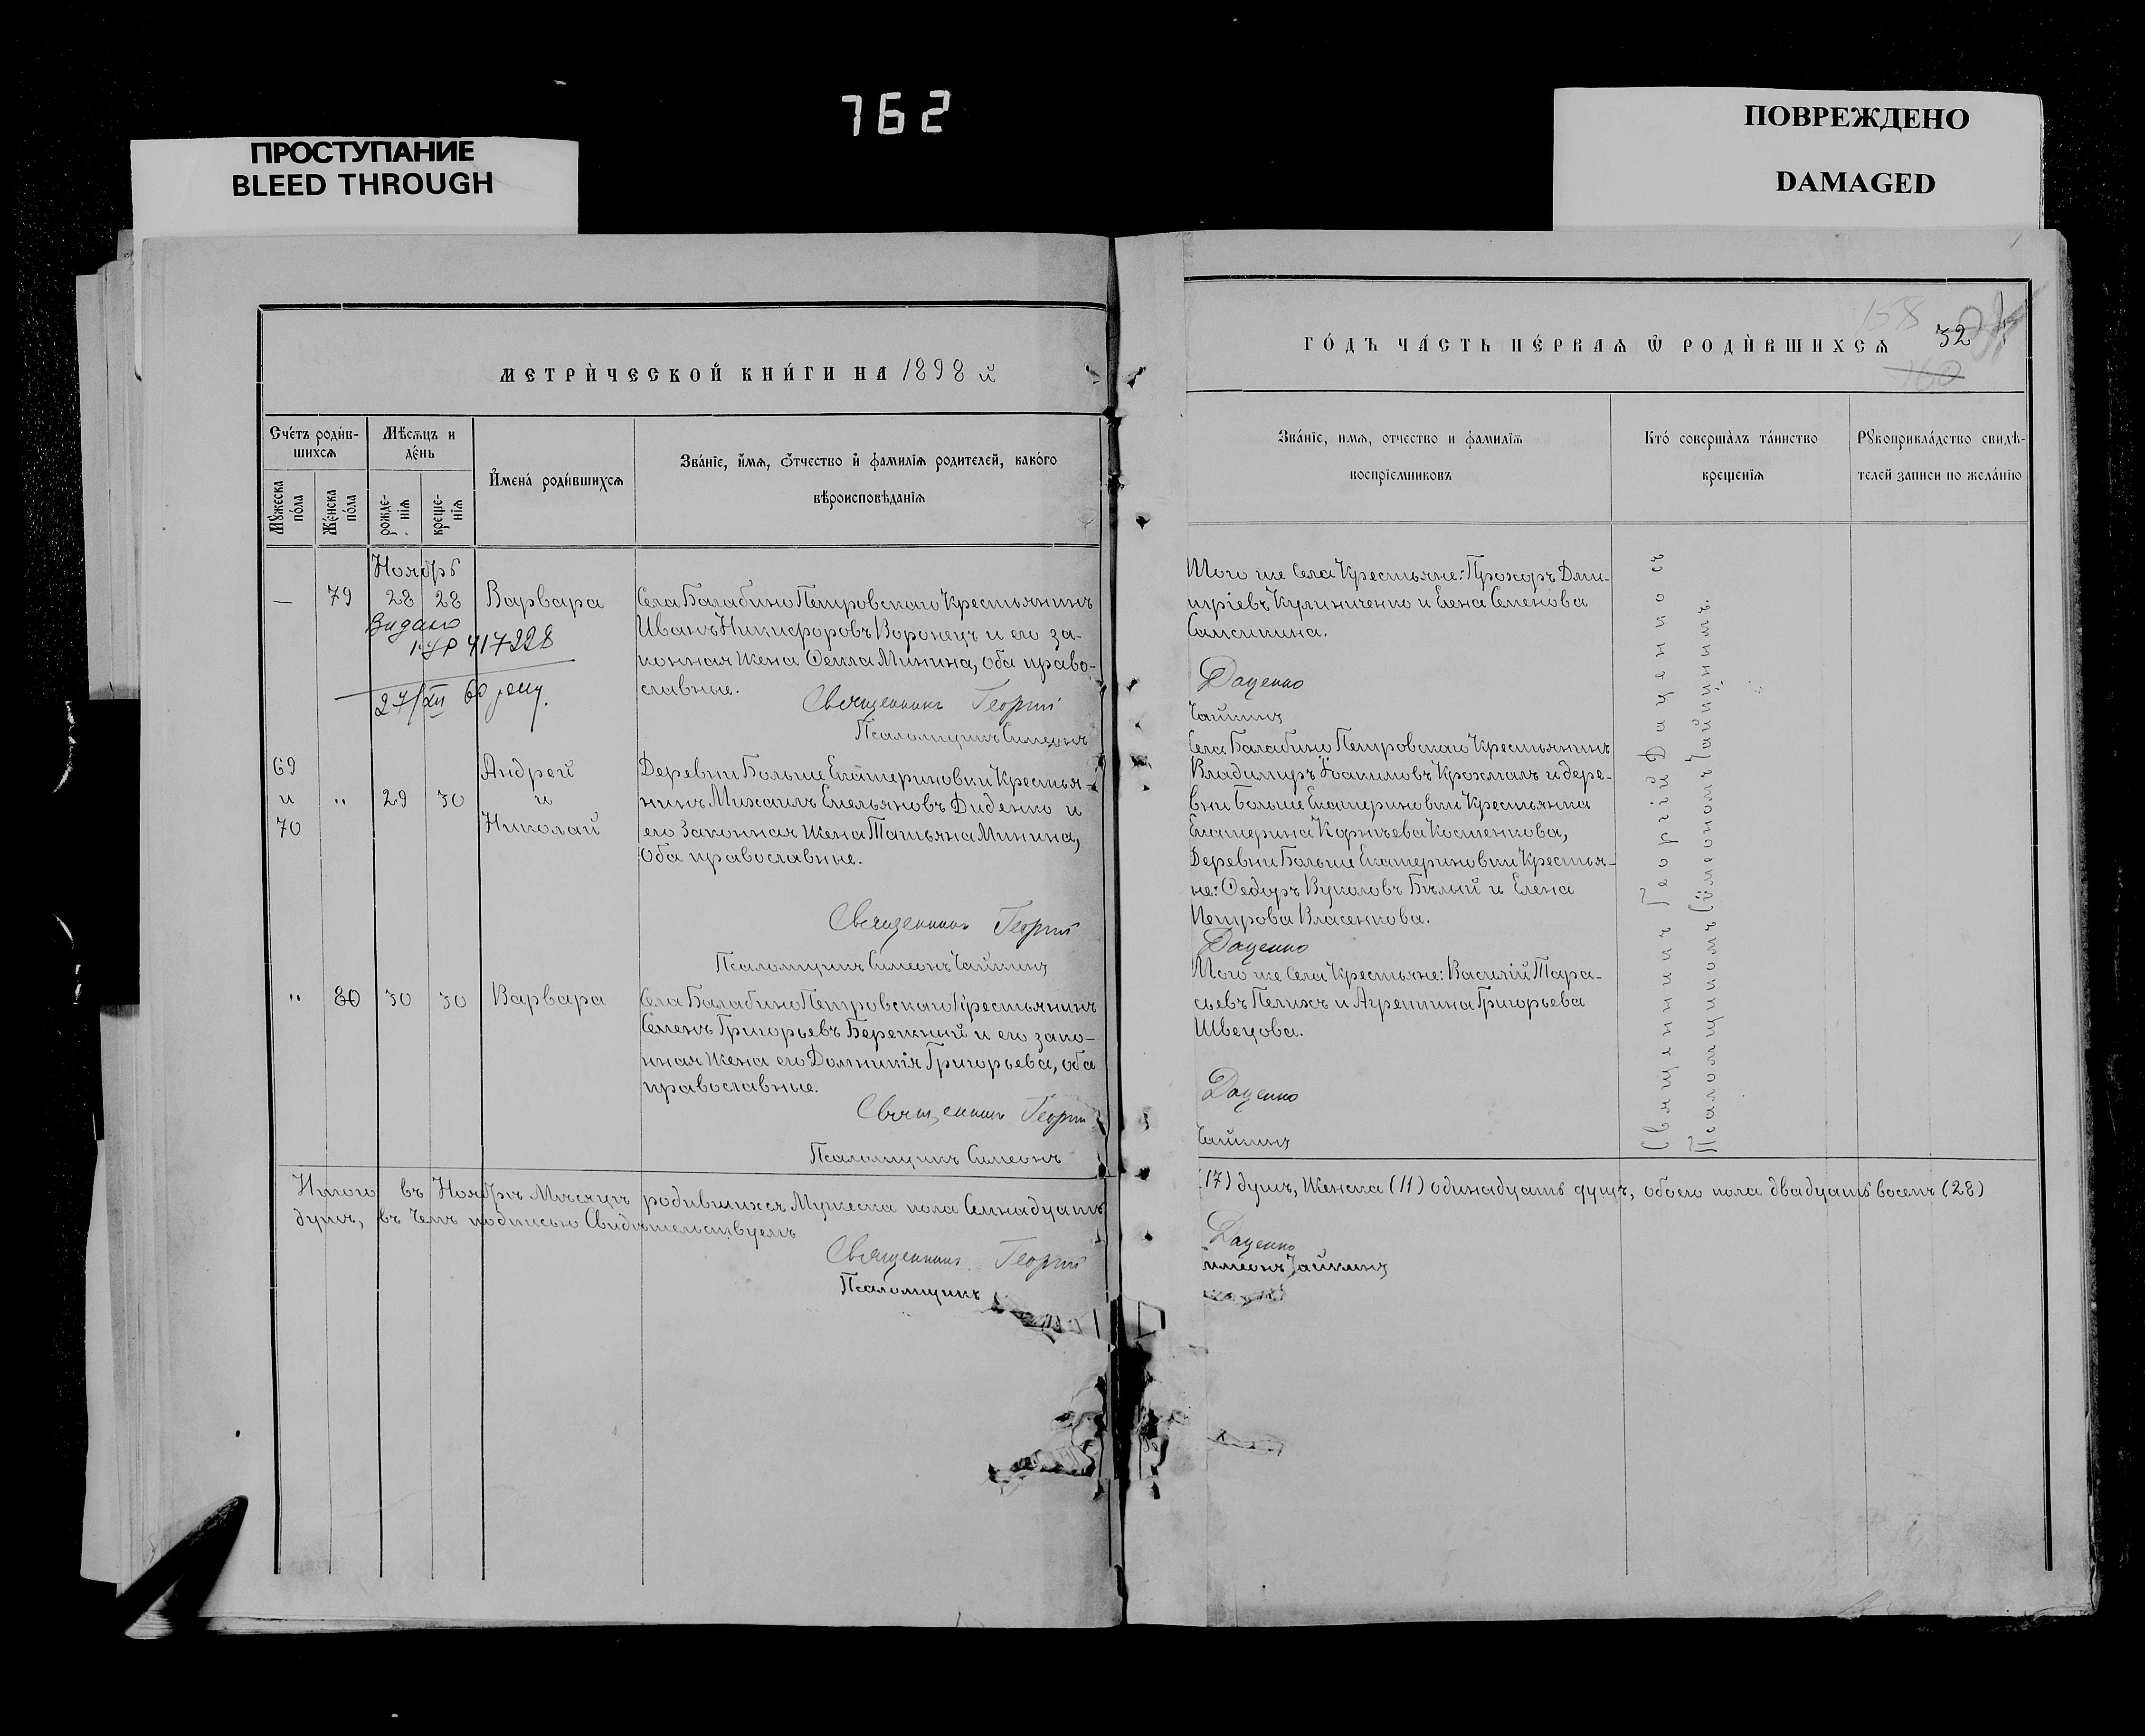 762
ПРОСТУПАНИЕ
BLEED THROUGH
ПОВРЕЖДЕНО
DAMAGED
МЕТРИ́ЧЕСКОЙ КНИ́ГИ НА 1898 й
Сче́тъ роди́в-
шихсѧ
Мѣ́сѧцъ и
де́нь
Мꙋ́жеска
по́ла
Же́нска
по́ла
рожде-
нїѧ
креще-
нїѧ
И҆мена̀ роди́вшихсѧ
Зва́нїе, и҆́мѧ, ѻ҆́тчество и҆ фамилїѧ родителей, како́го
вѣроисповѣ́данїѧ
Ноябрь
— 79 28 28 Варвара
Видано
417228
27/XII 60 року.
Села Балабино Петровскаго Крестьянинъ
Иванъ Никифоровъ Воронецъ и его за-
конная жена Ѳекла Минина, оба право-
славные.
Священникъ Георгій
Псаломщикъ Симеонъ
69
и
70
" 29 30
Андрей
и
Николай
Деревни Больше Екатериновки Крестья-
нинъ Михаилъ Емельяновъ Диденко и
его Законная жена Татьяна Минина,
Оба православные.
Священникъ Георгій
Псаломщикъ Симеонъ Чайкинъ
" 80 30 30 Варвара
Села Балабино Петровскаго Крестьянинъ
Семенъ Григорьевъ Бережный и его зако-
нная жена его Домникія Григорьева, оба
православные.
Священникъ Георгій
Псаломщикъ Симеонъ
Итого въ Ноябрѣ Мѣсяцѣ родившихся Мужеска пола Семнадцать
душъ, въ Чемъ подписью Свидѣтельствуемъ
Священникъ Георгій
Псаломщикъ
ГО́ДЪ ЧА́СТЬ ПЕ́РВАѦ Ѽ РОДИ́ВШИХСѦ
158
32
160
Зва́нїе, имѧ, отчество и фамилїѧ
воспрїемниковъ
Кто́ соверша́лъ та́инство
крещенїѧ
Рꙋкоприкла́дство свидѣ-
телей записи по жела́нїю
Того же Села Крестьяне: Прохоръ Дми-
тріевъ Кулиниченко и Елена Семенова
Самсикина.
Даценко
Чайкинъ
Села Балабино Петровскаго Крестьянинъ
Владимиръ Іоакимовъ Крохмаль и дере-
вни Больше Екатериновки Крестьянка
Екатерина Корнѣева Костенкова,
Деревни Больше Екатериновки Крестья-
не: Ѳедоръ Вуколовъ Бѣлый и Елена
Петрова Власенкова.
Даценко
Того же Села Крестьяне: Василій Тара-
сьевъ Пелихъ и Агрепина Григорьева
Швецова.
Даценко
Чайкинъ
Священникъ Георгій Даценко съ
Псаломщикомъ Симеономъ Чайкинимъ.
(17) душъ, Женска (11) одинадцать душъ, обоего пола двадцать восемъ (28)
Даценко
Симеонъ Чайкинъ